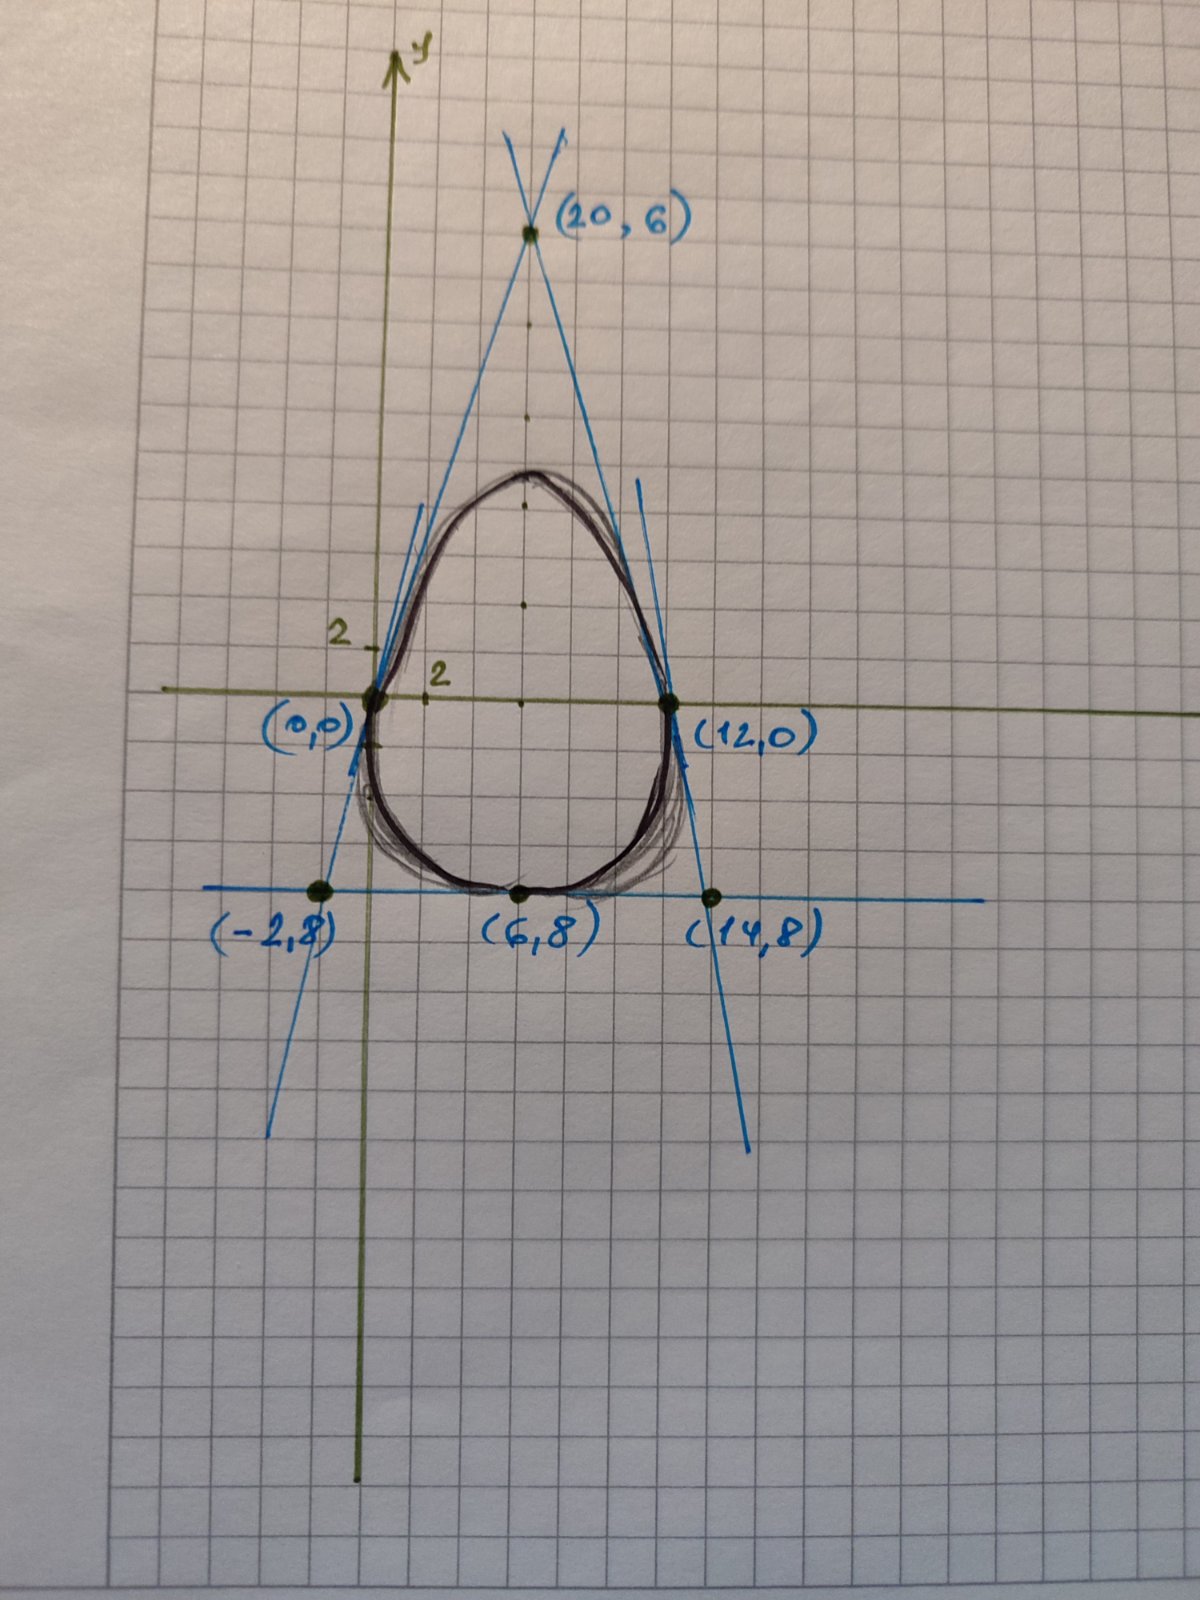 y
(20,6)
2
2
(0,0)
(12,0)
(-2,8)
(6,8)
(14,8)